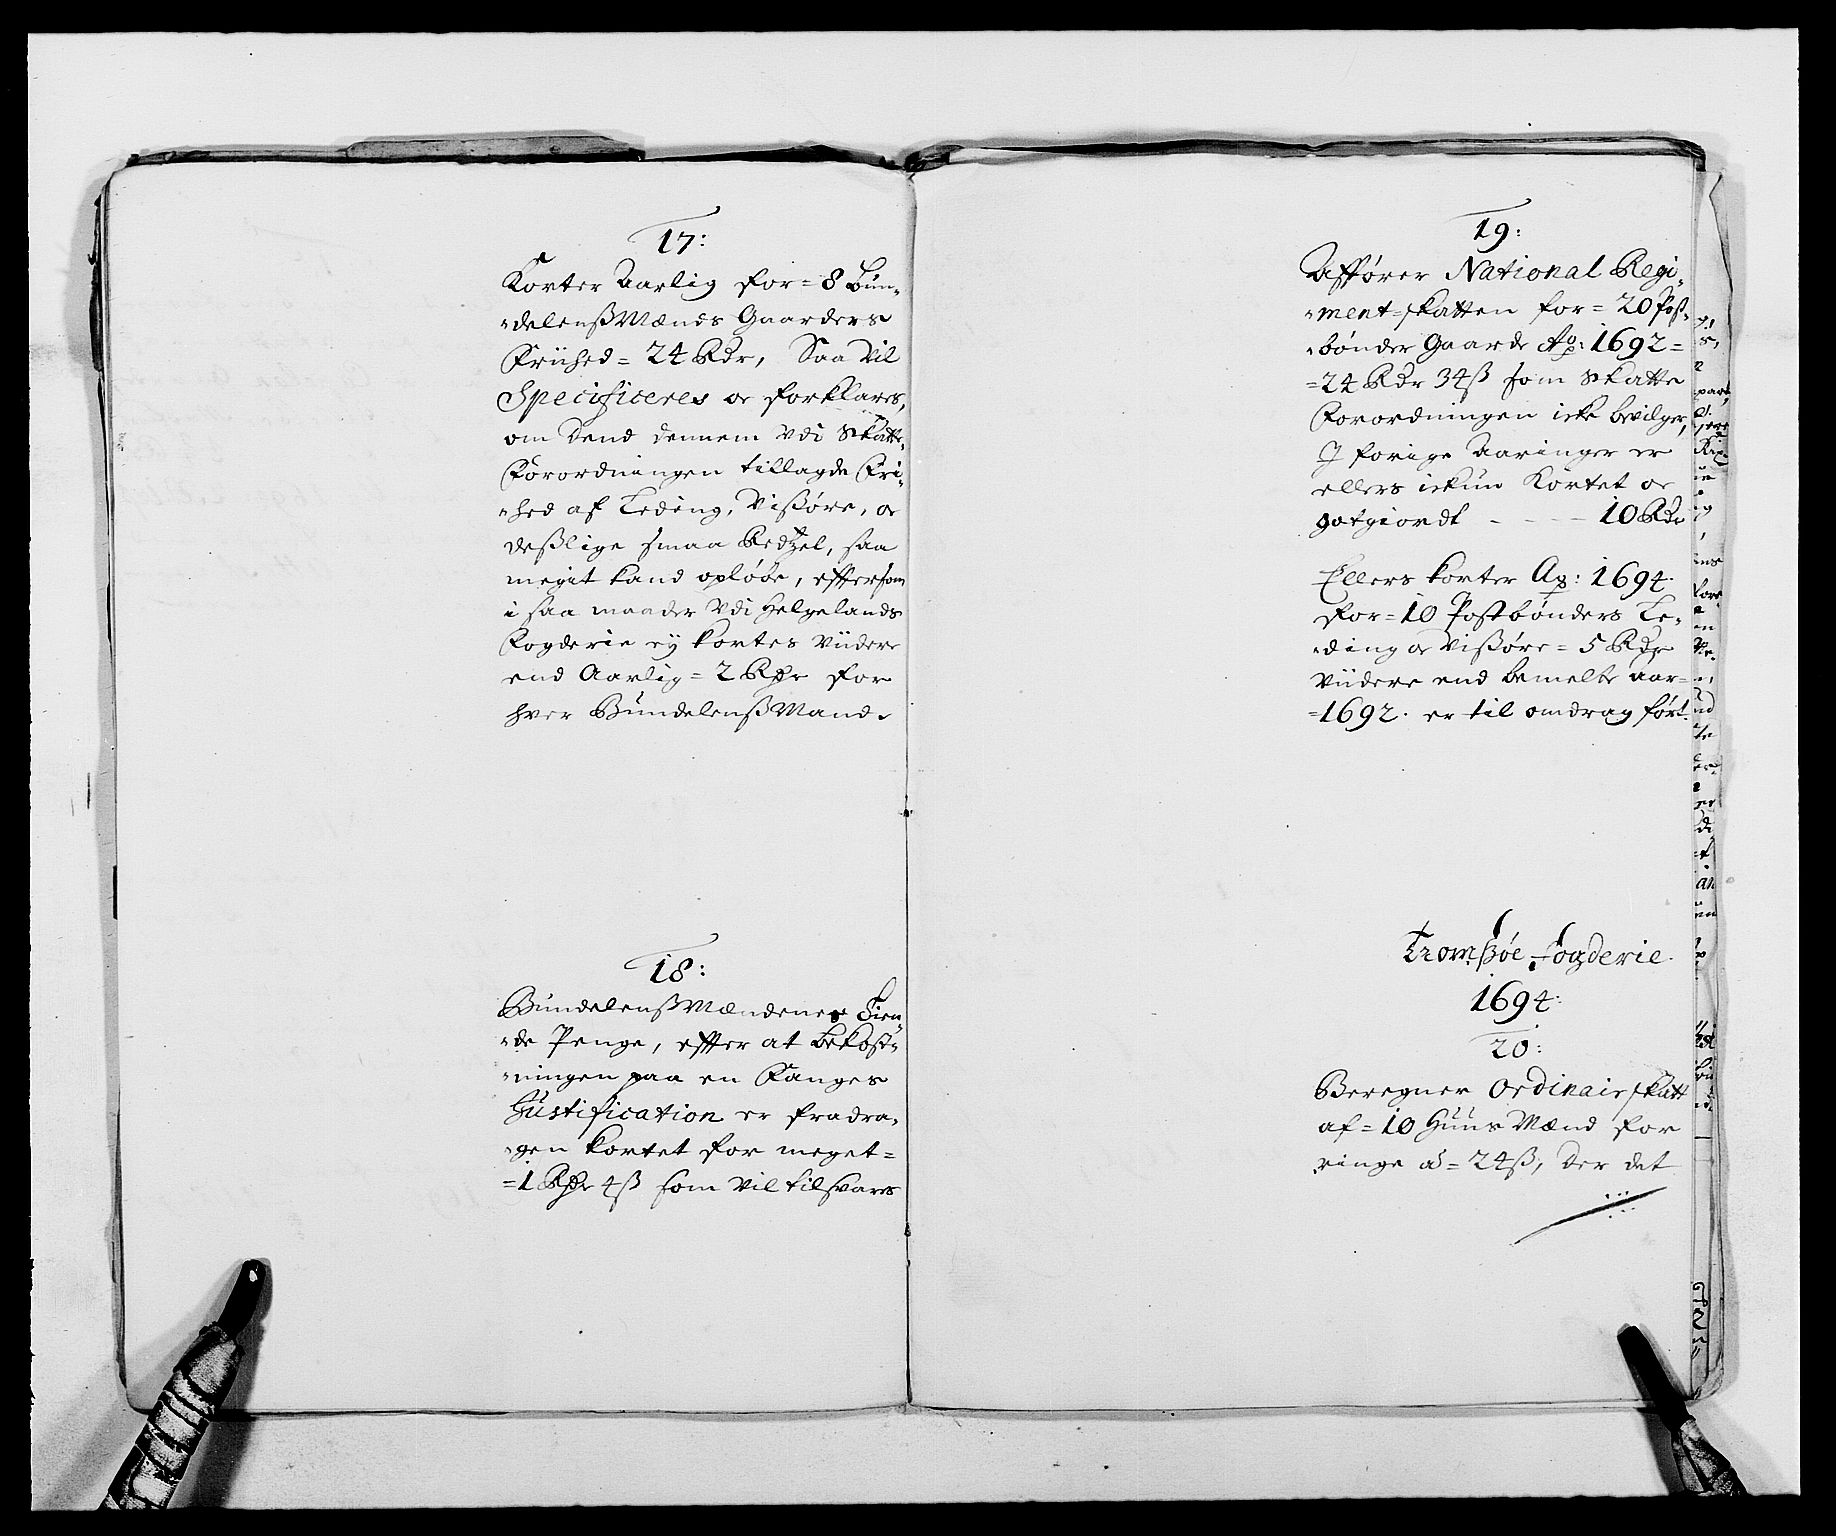 17:
Korter Aarlig for = 8 Bun-
delensß Mænds Gaarders
Friihed = 24 Rdr, Saa Vil
Specificeres oc forklares,
om dend dennem Vdi Skatte-
Forordningen tillagde Fri-
hed af Leding, Vißøre, oc
deßlige smaa Redtzel, saa
megit kand opløbe, efftersom
i saa maader Vdi Helgelands
Fogderie ej kortes Viidere
end Aarlig = 2 Rdr for
hver Bundelensß Mand.
18:
Bundelensß Mændenes Tien-
de Penge, effter at bekost-
ningen paa en Fanges
Justification er fradra-
gen kortet for meget =
= 1 Rdr 4ß som Vil tilsvares
19:
Affører National Regi-
ment-skatten for = 20 Post-
bønder Gaarde Ao: 1692 =
= 24 Rdr 34ß som Skatte
Forordningen icke bevilger,
J forige Aaringer er
ellers ickun Kortet oc
gotgiordt - - - - 10 Rdr
Ellers korter Ao: 1694.
for = 10 Postbønders Le-
ding oc Vißøre = 5 Rdr
Viidere end bemelte aar =
= 1692. er til omdrag ført.
Tromßøe Fogderie.
1694:
20:
Beregner Ordinair skatt
af = 10 Huus Mænd for
ringe à = 24ß, der det